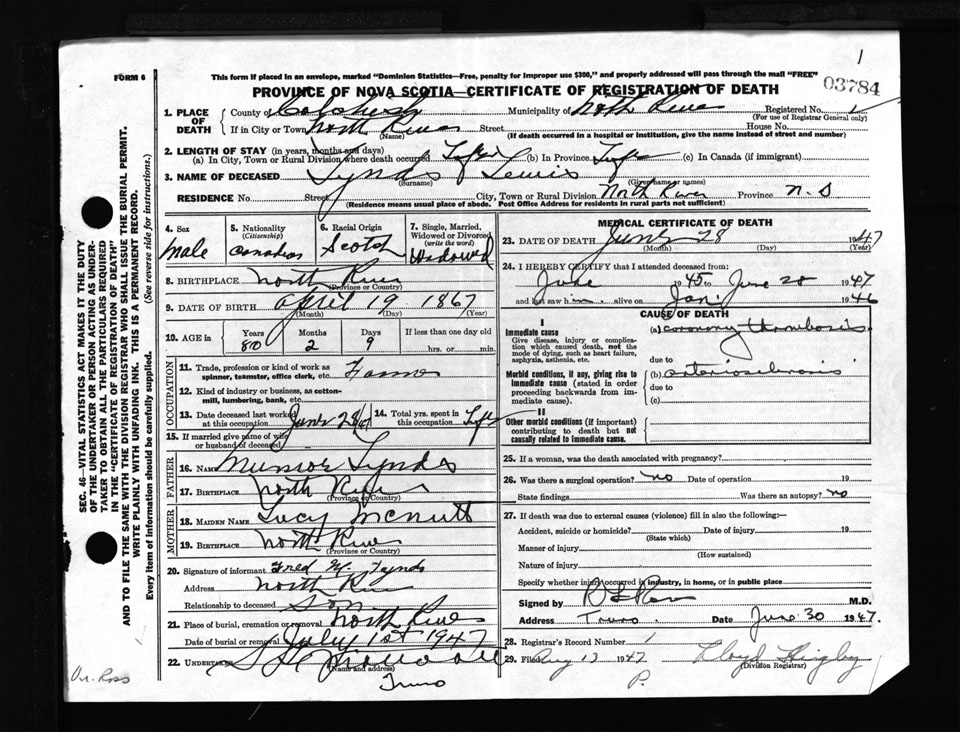 1
FORM 6
This form if placed in an envelope, marked "Dominion Statistics—Free, penalty for improper use $300," and properly addressed will pass through the mail "FREE"
03784
PROVINCE OF NOVA SCOTIA—CERTIFICATE OF REGISTRATION OF DEATH
1. PLACE OF DEATH
County of Colchester Municipality of North River Registered No. 1
(For use of Registrar General only)
If in City or Town North River Street House No.
(Name) (If death occurred in a hospital or institution, give the name instead of street and number)
2. LENGTH OF STAY (in years, months and days)
(a) In City, Town or Rural Division where death occurred Life (b) In Province Life (c) In Canada (if immigrant)
3. NAME OF DECEASED Lynds Lewis
(Surname) (Given name or names)
RESIDENCE No. Street City, Town or Rural Division North River Province N.S
(Residence means usual place of abode. Post Office Address for residents in rural parts not sufficient)
4. Sex Male
5. Nationality (Citizenship) Canadian
6. Racial Origin Scotch
7. Single, Married, Widowed or Divorced (write the word) Widowed
8. BIRTHPLACE North River
(Province or Country)
9. DATE OF BIRTH April 19 1867
(Month) (Day) (Year)
10. AGE in Years 80 Months 2 Days 9 If less than one day old
hrs. or min.
OCCUPATION
11. Trade, profession or kind of work as spinner, teamster, office clerk, etc. Farmer
12. Kind of industry or business, as cotton-mill, lumbering, bank, etc.
13. Date deceased last worked at this occupation June 28/47 14. Total yrs. spent in this occupation Life
15. If married give name of wife or husband of deceased
FATHER
16. Name Lynds
17. Birthplace North River
(Province or Country)
MOTHER
18. Maiden Name Lucy McNutt
19. Birthplace North River
(Province or Country)
20. Signature of informant Fred M. Lynds
Address North River
Relationship to deceased Son
21. Place of burial, cremation or removal North River
Date of burial or removal July 1st 1947
22. Undertaker
(Name and address)
Truro
MEDICAL CERTIFICATE OF DEATH
23. DATE OF DEATH June 28 1947
(Month) (Day) (Year)
24. I HEREBY CERTIFY that I attended deceased from:
1945 to June 28 1947
and last saw him alive on Jan 1946
CAUSE OF DEATH
I
Immediate cause (a) coronary thrombosis
Give disease, injury or complication which caused death, not the mode of dying, such as heart failure, asphyxia, asthenia, etc.
due to
Morbid conditions, if any, giving rise to immediate cause (stated in order proceeding backwards from immediate cause). (b) arteriosclerosis
due to
(c)
II
Other morbid conditions (if important) contributing to death but not causally related to immediate cause.
25. If a woman, was the death associated with pregnancy?
26. Was there a surgical operation? no Date of operation 19
State findings Was there an autopsy? no
27. If death was due to external causes (violence) fill in also the following:—
Accident, suicide or homicide? Date of injury 19
(State which)
Manner of injury
(How sustained)
Nature of injury
Specify whether injury occurred in industry, in home, or in public place
Signed by M.D.
Address Truro. Date June 30 1947.
28. Registrar's Record Number 1
29. Filed Aug 13 1947 Lloyd
(Division Registrar)
P.
Dr. Ross
SEC. 46—VITAL STATISTICS ACT MAKES IT THE DUTY
OF THE UNDERTAKER OR PERSON ACTING AS UNDERTAKER TO OBTAIN ALL THE PARTICULARS REQUIRED
IN THE "CERTIFICATE OF REGISTRATION OF DEATH"
AND TO FILE THE SAME WITH THE DIVISION REGISTRAR WHO SHALL ISSUE THE BURIAL PERMIT.
WRITE PLAINLY WITH UNFADING INK. THIS IS A PERMANENT RECORD.
Every item of information should be carefully supplied. (See reverse side for instructions.)